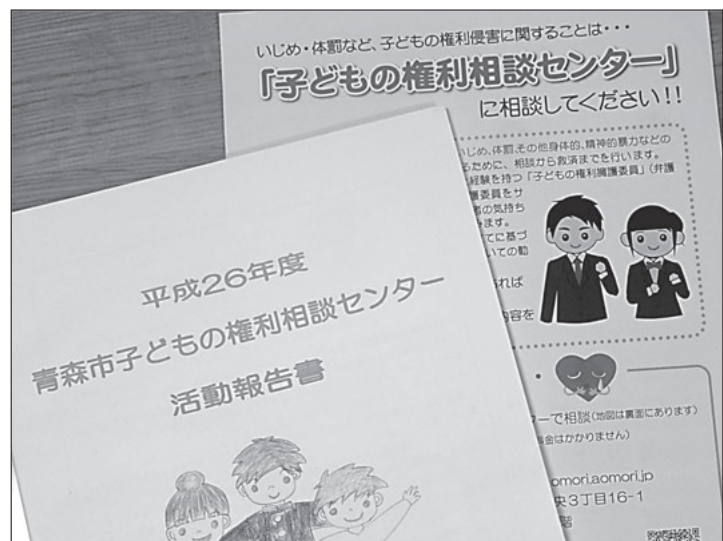 いじめ・体罰など、子どもの権利侵害に関することは・・・
「子どもの権利相談センター」
に相談してください!!
いじめ、体罰、その他身体的、精神的暴力などの
るために、相談から救済までを行います。
経験を持つ「子どもの権利擁護委員」(弁護
護委員をサ
者の気持ち
ます。
てに基づ
いての勧
れば
内容を
ーで相談(地図は裏面にあります)
金はかかりません)
omori.aomori.jp
央3丁目16-1
階
平成26年度
青森市子どもの権利相談センター
活動報告書